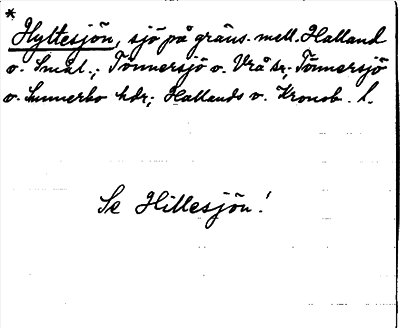 *
Hyltesjön, sjö på gräns. mell. Halland
o. Smål.; Tönnersjö o. Vrå sr; Tönnersjö
o. Sunnerbo hdr; Hallands o. Kronob. l.
Se Hillesjön!